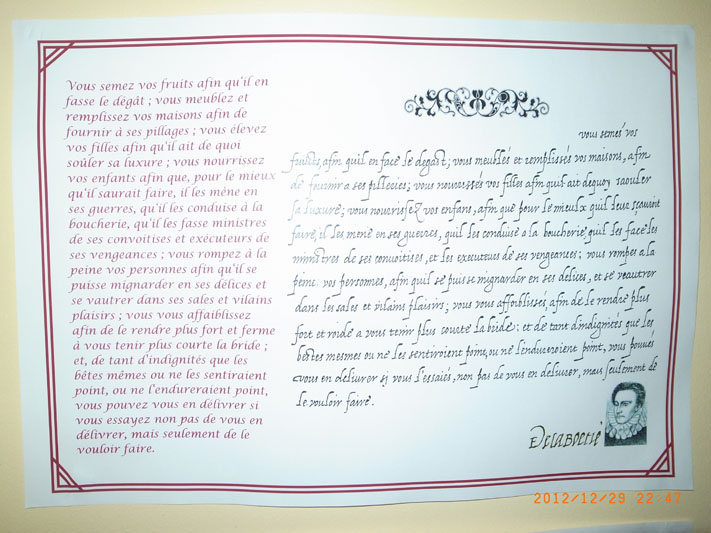 Vous semez vos fruits afin qu'il en
fasse le dégât ; vous meublez et
remplissez vos maisons afin de
fournir à ses pillages ; vous élevez
vos filles afin qu'il ait de quoi
soûler sa luxure ; vous nourrissez
vos enfants afin que, pour le mieux
qu'il saurait faire, il les mène en
ses guerres, qu'il les conduise à la
boucherie, qu'il les fasse ministres
de ses convoitises et exécuteurs de
ses vengeances ; vous rompez à la
peine vos personnes afin qu'il se
puisse mignarder en ses délices et
se vautrer dans ses sales et vilains
plaisirs ; vous vous affaiblissez
afin de le rendre plus fort et ferme
à vous tenir plus courte la bride ;
et, de tant d'indignités que les
bêtes mêmes ou ne les sentiraient
point, ou ne l'endureraient point,
vous pouvez vous en délivrer si
vous essayez non pas de vous en
délivrer, mais seulement de le
vouloir faire.
vous semés vos
fruicts, afin quil en face le degast; vous meublés et remplissés vos maisons, afin
de fournir a ses pilleries; vous nourrissés vos filles afin quil ait dequoy saouler
sa luxure; vous nourrissez vos enfans, afin que pour le mieulx quil leur scauroit
faire, il les mene en ses guerres, quil les conduise a la boucherie, quil les face les
ministres de ses convoitises, et les executeurs de ses vengeances; vous rompes a la
peine vos personnes, afin quil se puisse mignarder en ses délices, et se veautrer
dans les sales et vilains plaisirs; vous vous affoiblisses, afin de le rendre plus
fort et roide a vous tenir plus courte la bride: et de tant dindignités que les
bestes mesmes ou ne les sentiroient poine, ou ne lendureroient point, vous pouvés
vous en délivrer si vous l'essaiés, non pas de vous en delivrer, mais seulement de
le vouloir faire.
DelaBoetie
2012/12/29 22:47